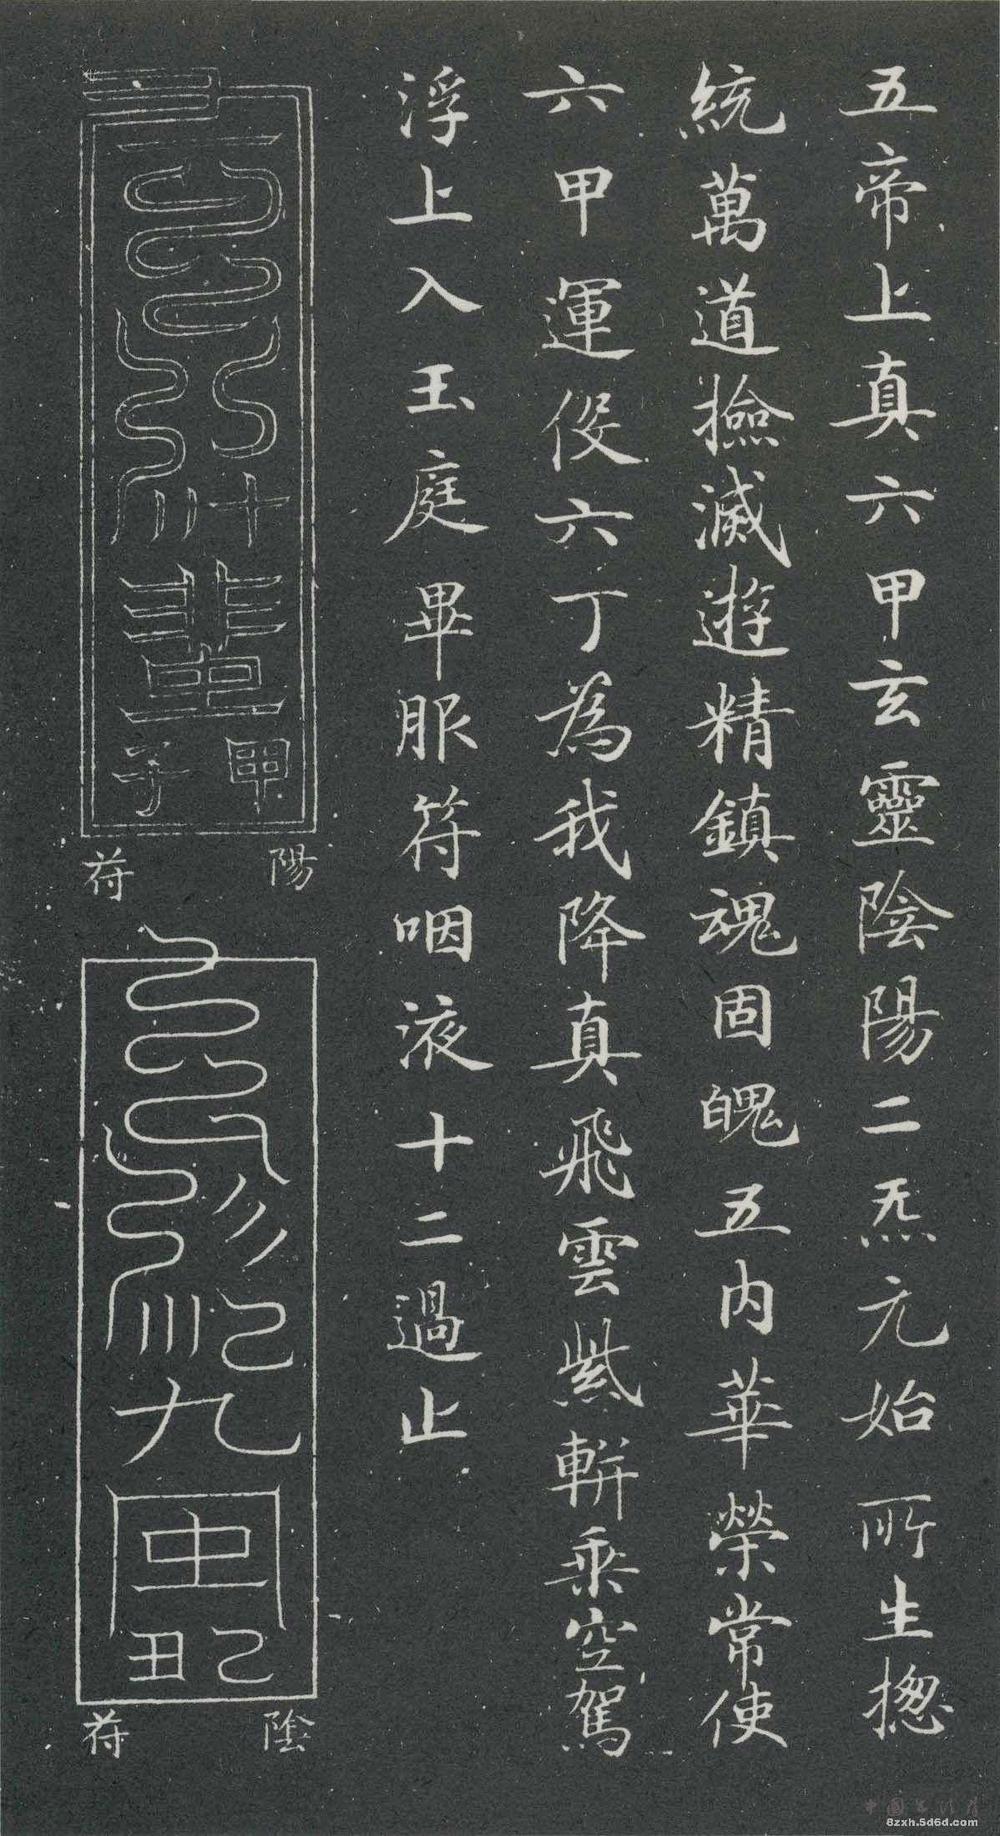 五帝上真六甲玄靈陰陽二炁元始所生揔
統萬道撿滅遊精鎮魂固魄五內華榮常使
六甲運役六丁為我降真飛雲紫軿乘空駕
浮上入玉庭畢服符咽液十二過止
甲子
陽符
己丑
陰符
8zxh.5d6d.com